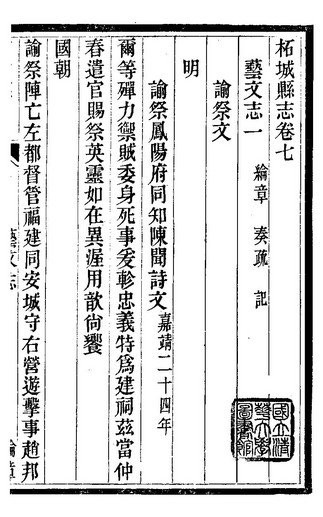 柘城縣志卷七
藝文志一 綸章 奏疏 記
諭祭文
明
諭祭鳳陽府同知陳聞詩文 嘉靖二十四年
爾等殫力禦賊委身死事爰軫忠義特為建祠茲當仲
春遣官賜祭英靈如在異渥用歆尙饗
國朝
諭祭陣亡左都督管福建同安城守右營遊擊事趙邦
藝文志
綸章
國立清華大學圖書館